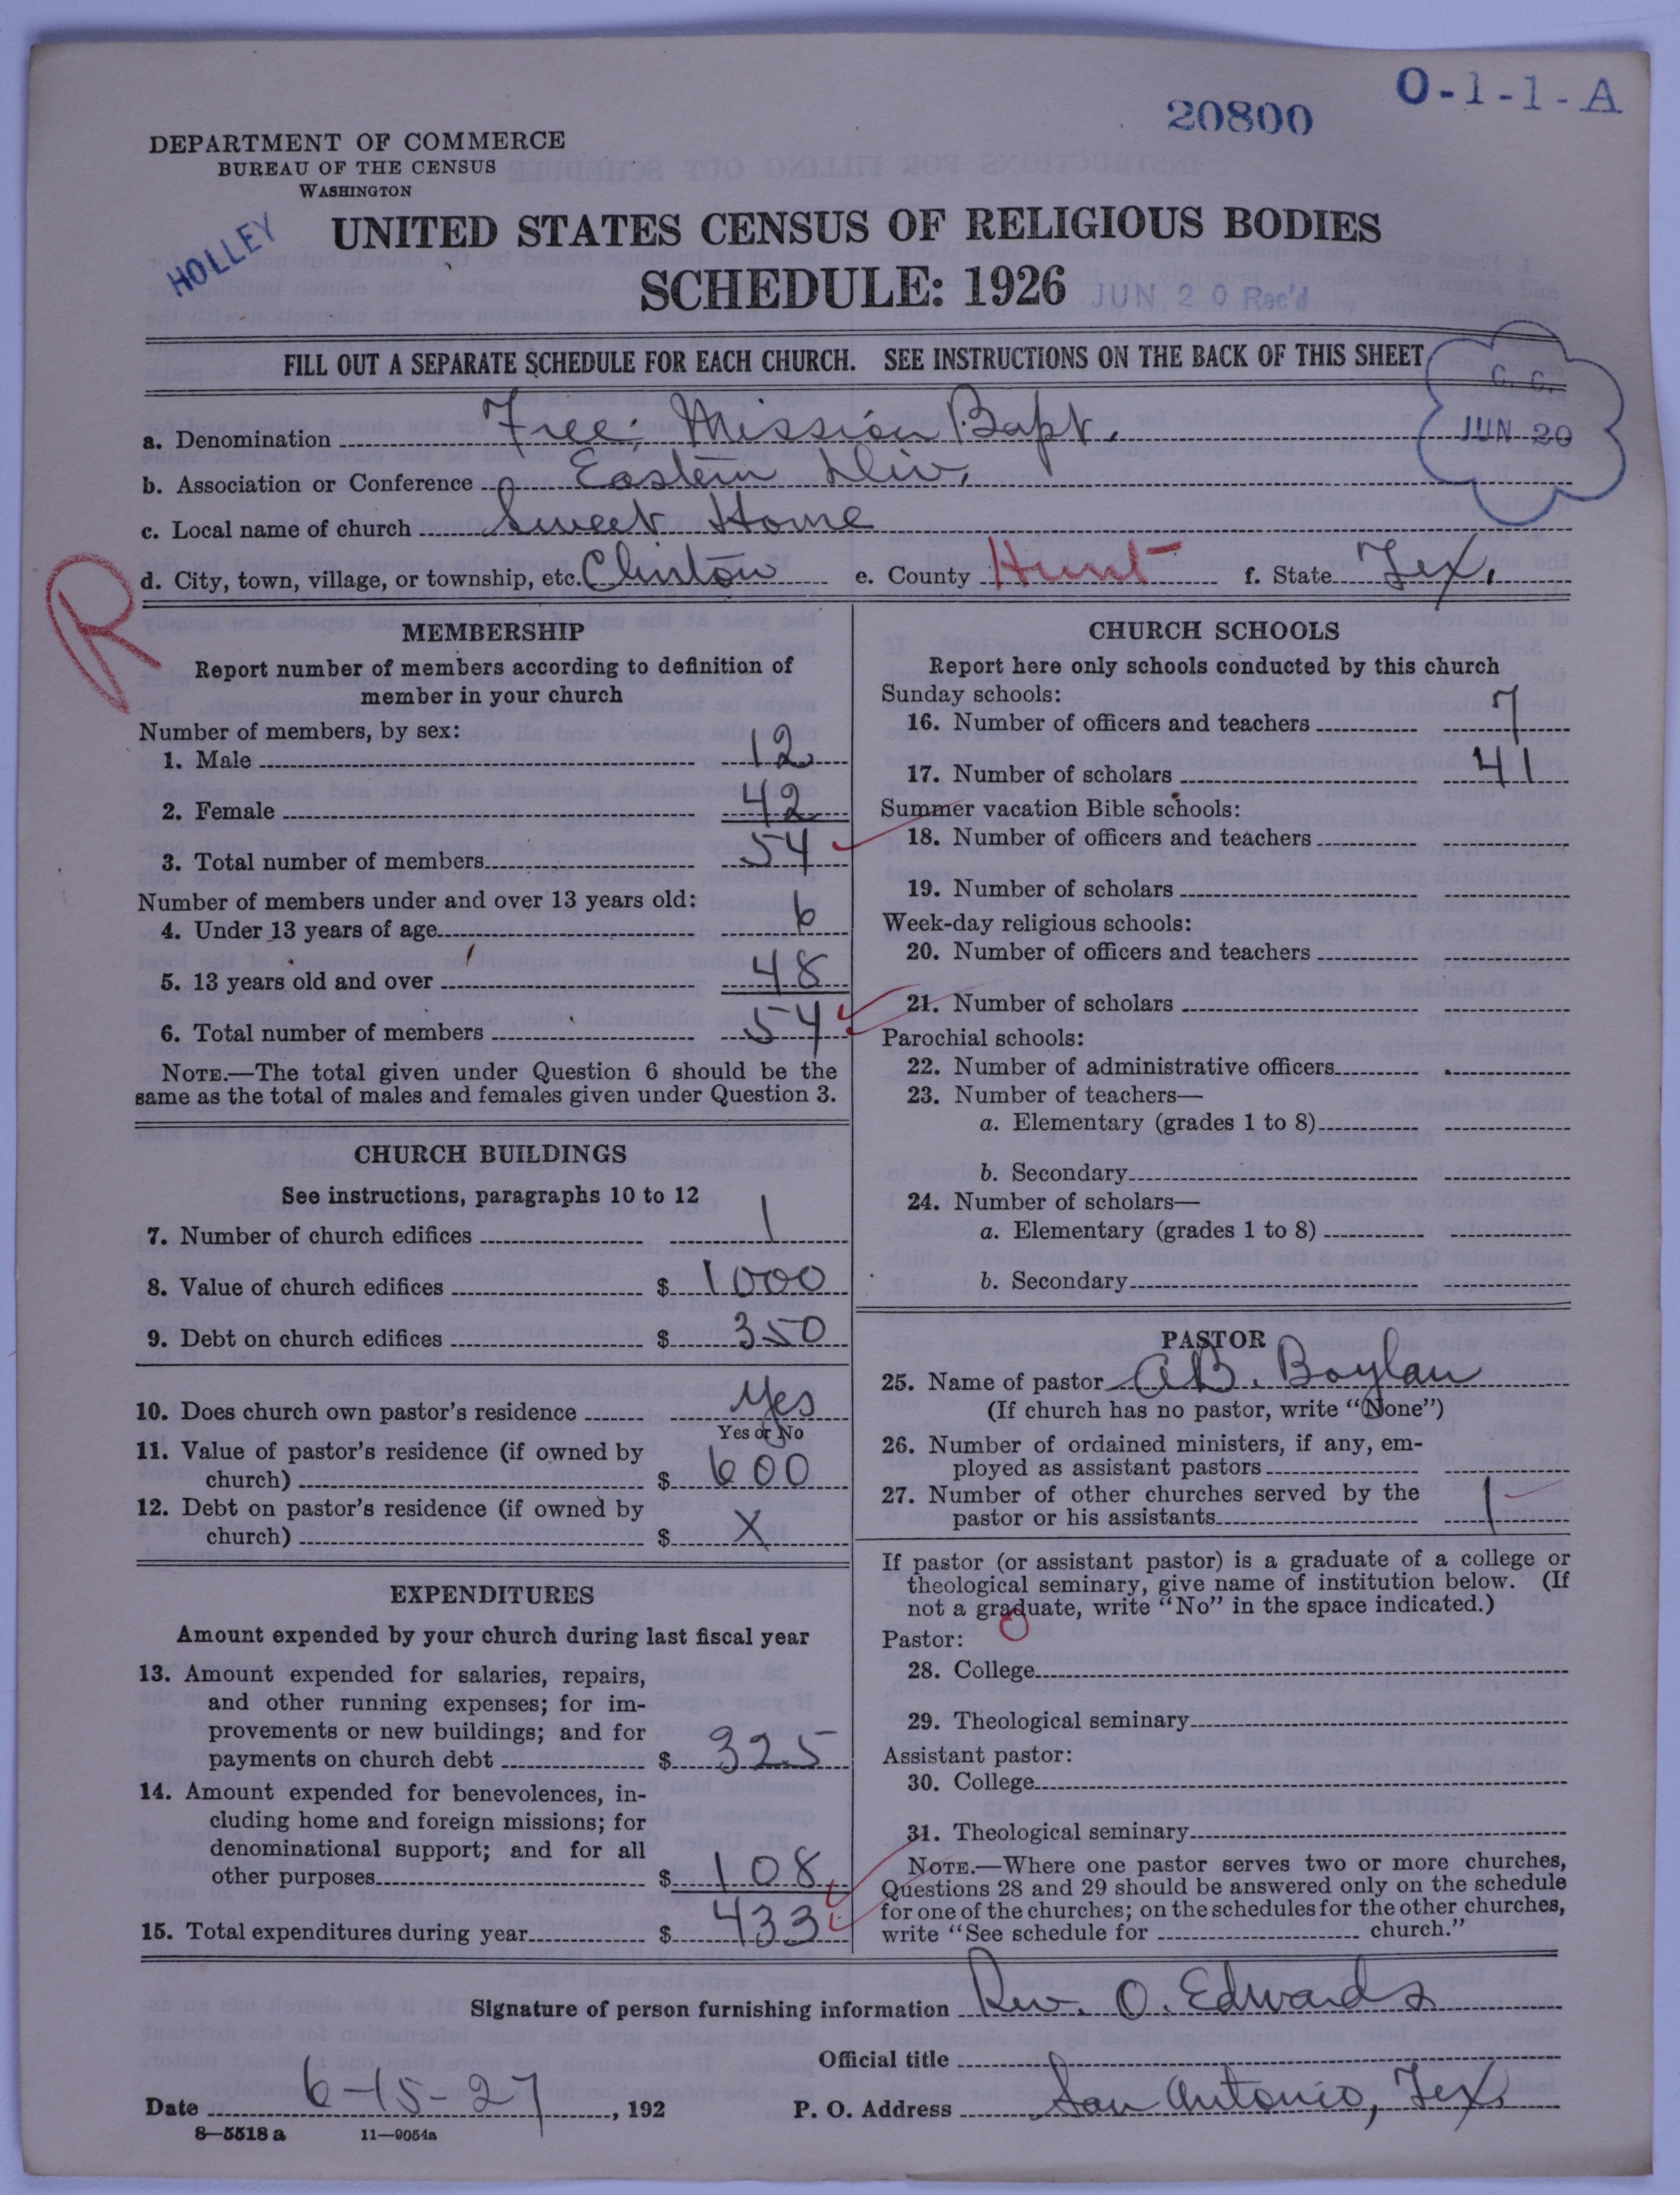 O-1-1-A
20800
DEPARTMENT OF COMMERCE
BUREAU OF THE CENSUS
WASHINGTON
HOLLEY
UNITED STATES CENSUS OF RELIGIOUS BODIES
SCHEDULE: 1926
JUN 20 Rec'd
FILL OUT A SEPARATE SCHEDULE FOR EACH CHURCH. SEE INSTRUCTIONS ON THE BACK OF THIS SHEET
C. C.
JUN 20
a. Denomination Free Mission Bapt.
b. Association or Conference Eastern Div.
c. Local name of church Sweet Home
d. City, town, village, or township, etc. Clinton e. County Hunt f. State Tex.
R
MEMBERSHIP
Report number of members according to definition of
member in your church
Number of members, by sex:
1. Male 12
2. Female 42
3. Total number of members 54
Number of members under and over 13 years old:
4. Under 13 years of age 6
5. 13 years old and over 48
6. Total number of members 54
NOTE.—The total given under Question 6 should be the
same as the total of males and females given under Question 3.
CHURCH BUILDINGS
See instructions, paragraphs 10 to 12
7. Number of church edifices 1
8. Value of church edifices $ 1000
9. Debt on church edifices $ 350
10. Does church own pastor's residence Yes
Yes or No
11. Value of pastor's residence (if owned by
church) $ 600
12. Debt on pastor's residence (if owned by
church) $ X
EXPENDITURES
Amount expended by your church during last fiscal year
13. Amount expended for salaries, repairs,
and other running expenses; for im-
provements or new buildings; and for
payments on church debt $ 325
14. Amount expended for benevolences, in-
cluding home and foreign missions; for
denominational support; and for all
other purposes $ 108
15. Total expenditures during year $ 433
CHURCH SCHOOLS
Report here only schools conducted by this church
Sunday schools:
16. Number of officers and teachers 7
17. Number of scholars 41
Summer vacation Bible schools:
18. Number of officers and teachers
19. Number of scholars
Week-day religious schools:
20. Number of officers and teachers
21. Number of scholars
Parochial schools:
22. Number of administrative officers
23. Number of teachers—
a. Elementary (grades 1 to 8)
b. Secondary
24. Number of scholars—
a. Elementary (grades 1 to 8)
b. Secondary
PASTOR
25. Name of pastor A.B. Boylan
(If church has no pastor, write "None")
26. Number of ordained ministers, if any, em-
ployed as assistant pastors
27. Number of other churches served by the
pastor or his assistants 1
If pastor (or assistant pastor) is a graduate of a college or
theological seminary, give name of institution below. (If
not a graduate, write "No" in the space indicated.)
Pastor:
28. College
29. Theological seminary
Assistant pastor:
30. College
31. Theological seminary
NOTE.—Where one pastor serves two or more churches,
Questions 28 and 29 should be answered only on the schedule
for one of the churches; on the schedules for the other churches,
write "See schedule for church."
Signature of person furnishing information Rev. O. Edwards
Official title
Date 6-15-27, 192 P. O. Address San Antonio, Tex.
8—5518 a 11—9054a